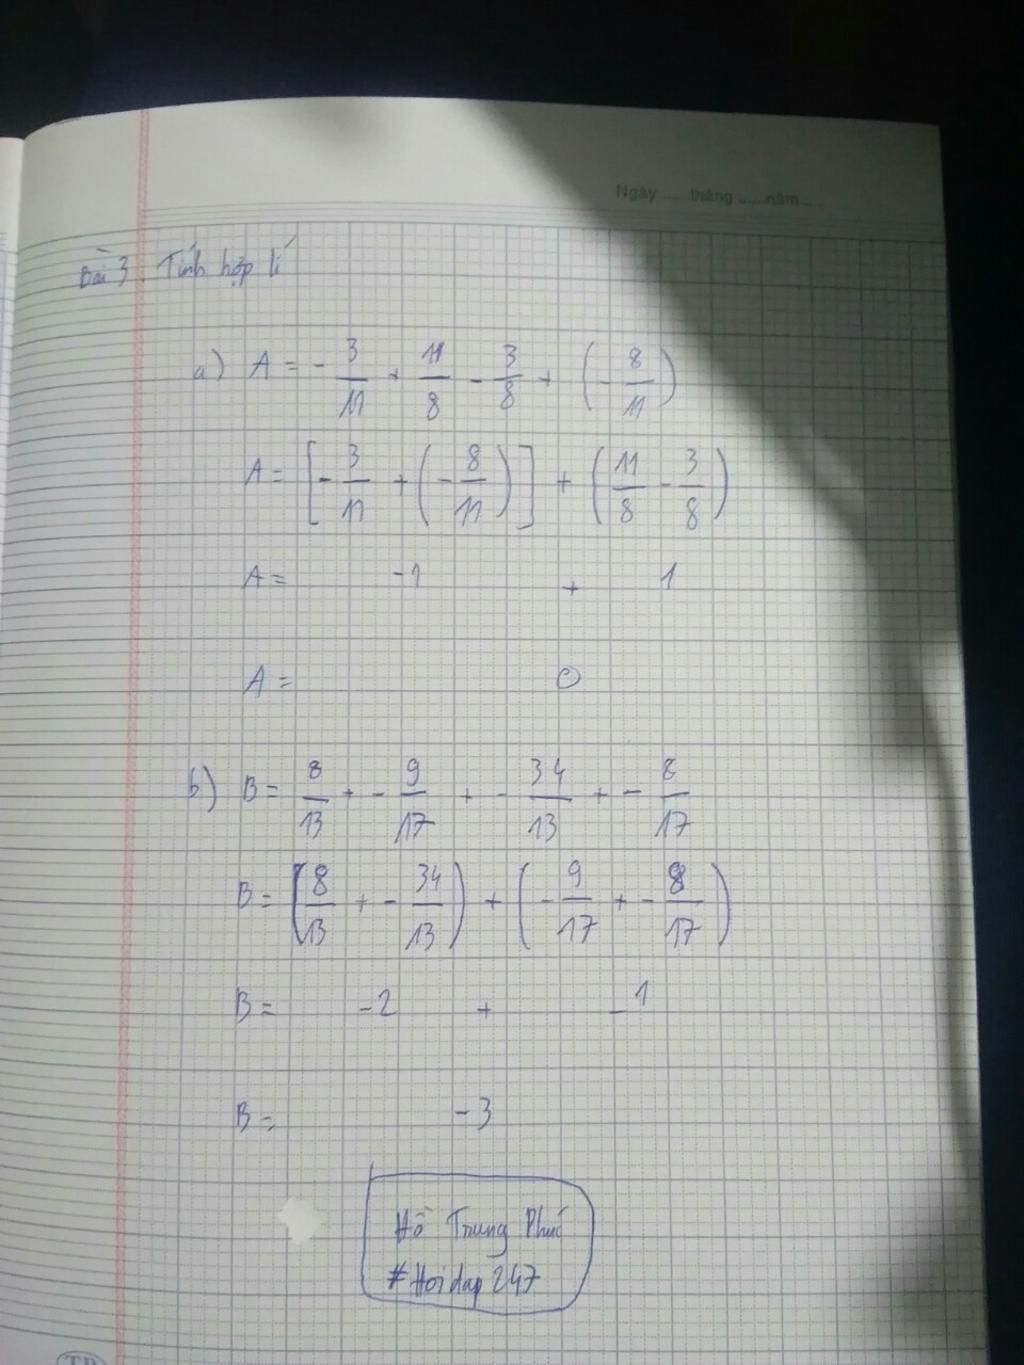 Ngày ..... tháng ..... năm .....
Bài 3 Tính hợp lí
a) A = - 3/11 + 11/8 - 3/8 + (- 8/11)
A = [- 3/11 + (- 8/11)] + (11/8 - 3/8)
A = -1 + 1
A = 0
b) B = 8/13 + - 9/17 + - 34/13 + - 8/17
B = (8/13 + - 34/13) + (- 9/17 + - 8/17)
B = -2 + -1
B = -3
Hồ Trung Phúc
#Hoidap247